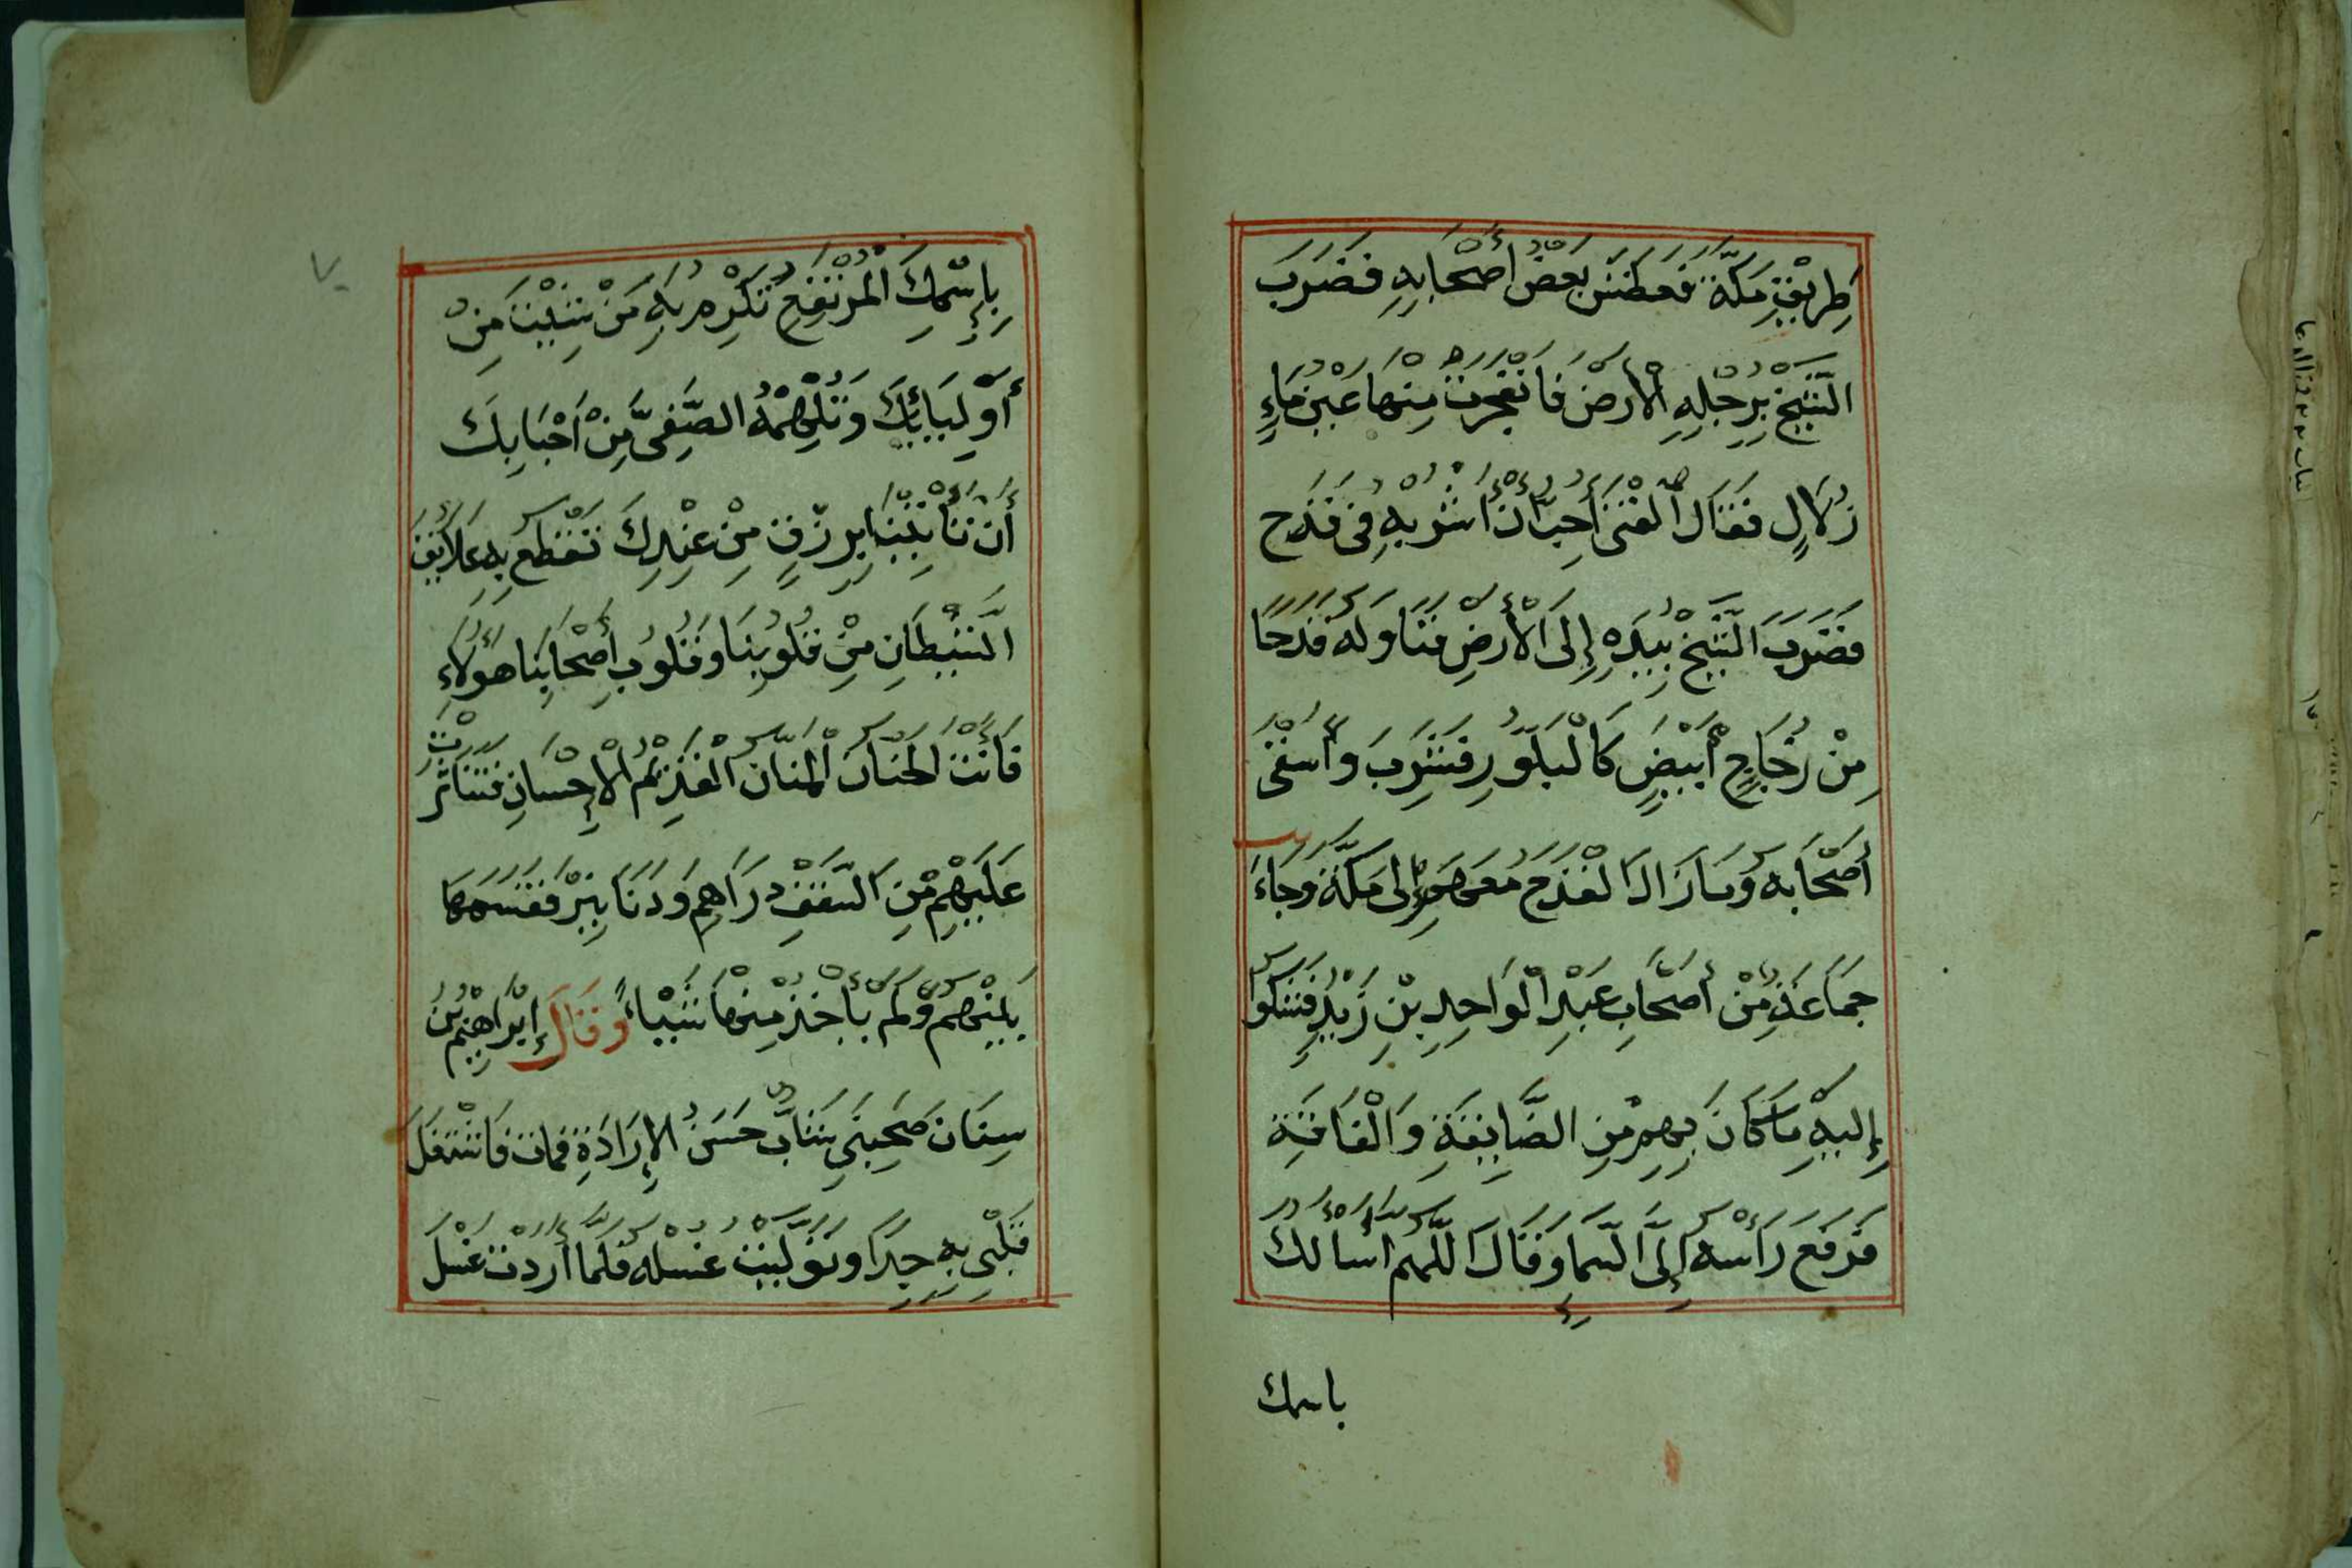 طَرِيْقِ مَكَّةَ فَعَطَشَ بَعْضُ أَصْحَابِهِ فَضَرَبَ
الشَّيْخُ بِرِجْلِهِ الْأَرْضَ فَانْفَجَرَتْ مِنْهَا عَيْنُ مَاءٍ
زُلَالٍ فَقَالَ الْفَتَى أُحِبُّ أَنْ أَشْرَبَهُ فِي قَدَحٍ
فَضَرَبَ الشَّيْخُ بِيَدِهِ إِلَى الْأَرْضِ فَنَاوَلَهُ قَدَحًا
مِنْ زُجَاجٍ أَبْيَضٍ كَالْبَلُّورِ فَشَرِبَ وَأَسْقَى
أَصْحَابَهُ وَمَا زَالَ الْقَدَحُ مَعَهُمْ إِلَى مَكَّةَ وَجَاءَ
جَمَاعَةٌ مِنْ أَصْحَابِ عَبْدِ الْوَاحِدِ بْنِ زَيْدٍ فَشَكَوْا
إِلَيْهِ مَا كَانَ بِهِمْ مِنَ الضَّايِقَةِ وَالْفَاقَةِ
فَرَفَعَ رَأْسَهُ إِلَى السَّمَاءِ وَقَالَ اللَّهُمَّ أَسْأَلُكَ
باسمك
بِإِسْمِكَ الْمُرْتَفِعِ تُكْرِمُ بِهِ مَنْ شِئْتَ مِنْ
أَوْلِيَائِكَ وَتُلْهِمُهُ الصَّفِيَّ مِنْ أَحْبَابِكَ
أَنْ تَأْتِيَنَا بِرِزْقٍ مِنْ عِنْدِكَ تَقْطَعُ بِهِ عَلَائِقَ
الشَّيْطَانِ مِنْ قُلُوبِنَا وَقُلُوبِ أَصْحَابِنَا هَؤُلَاءِ
فَأَنْتَ الْحَنَّانُ الْمَنَّانُ الْقَدِيْمُ الْإِحْسَانِ فَتَنَاثَرَتْ
عَلَيْهِمْ مِنَ السَّقْفِ دَرَاهِمَ وَدَنَانِيْرَ فَقَسَمَهَا
بَيْنَهُمْ وَلَمْ يَأْخُذْ مِنْهَا شَيْئًا وَقَالَ إِبْرَاهِيْمُ بْنُ
سِنَانَ صَحِبَنِي شَابٌّ حَسَنُ الْإِرَادَةِ فَمَاتَ فَاشْتَغَلَ
قَلْبِي بِهِ جِدًّا وَتَوَلَّيْتُ غُسْلَهُ فَلَمَّا أَرَدْتُ غُسْلَ
٧